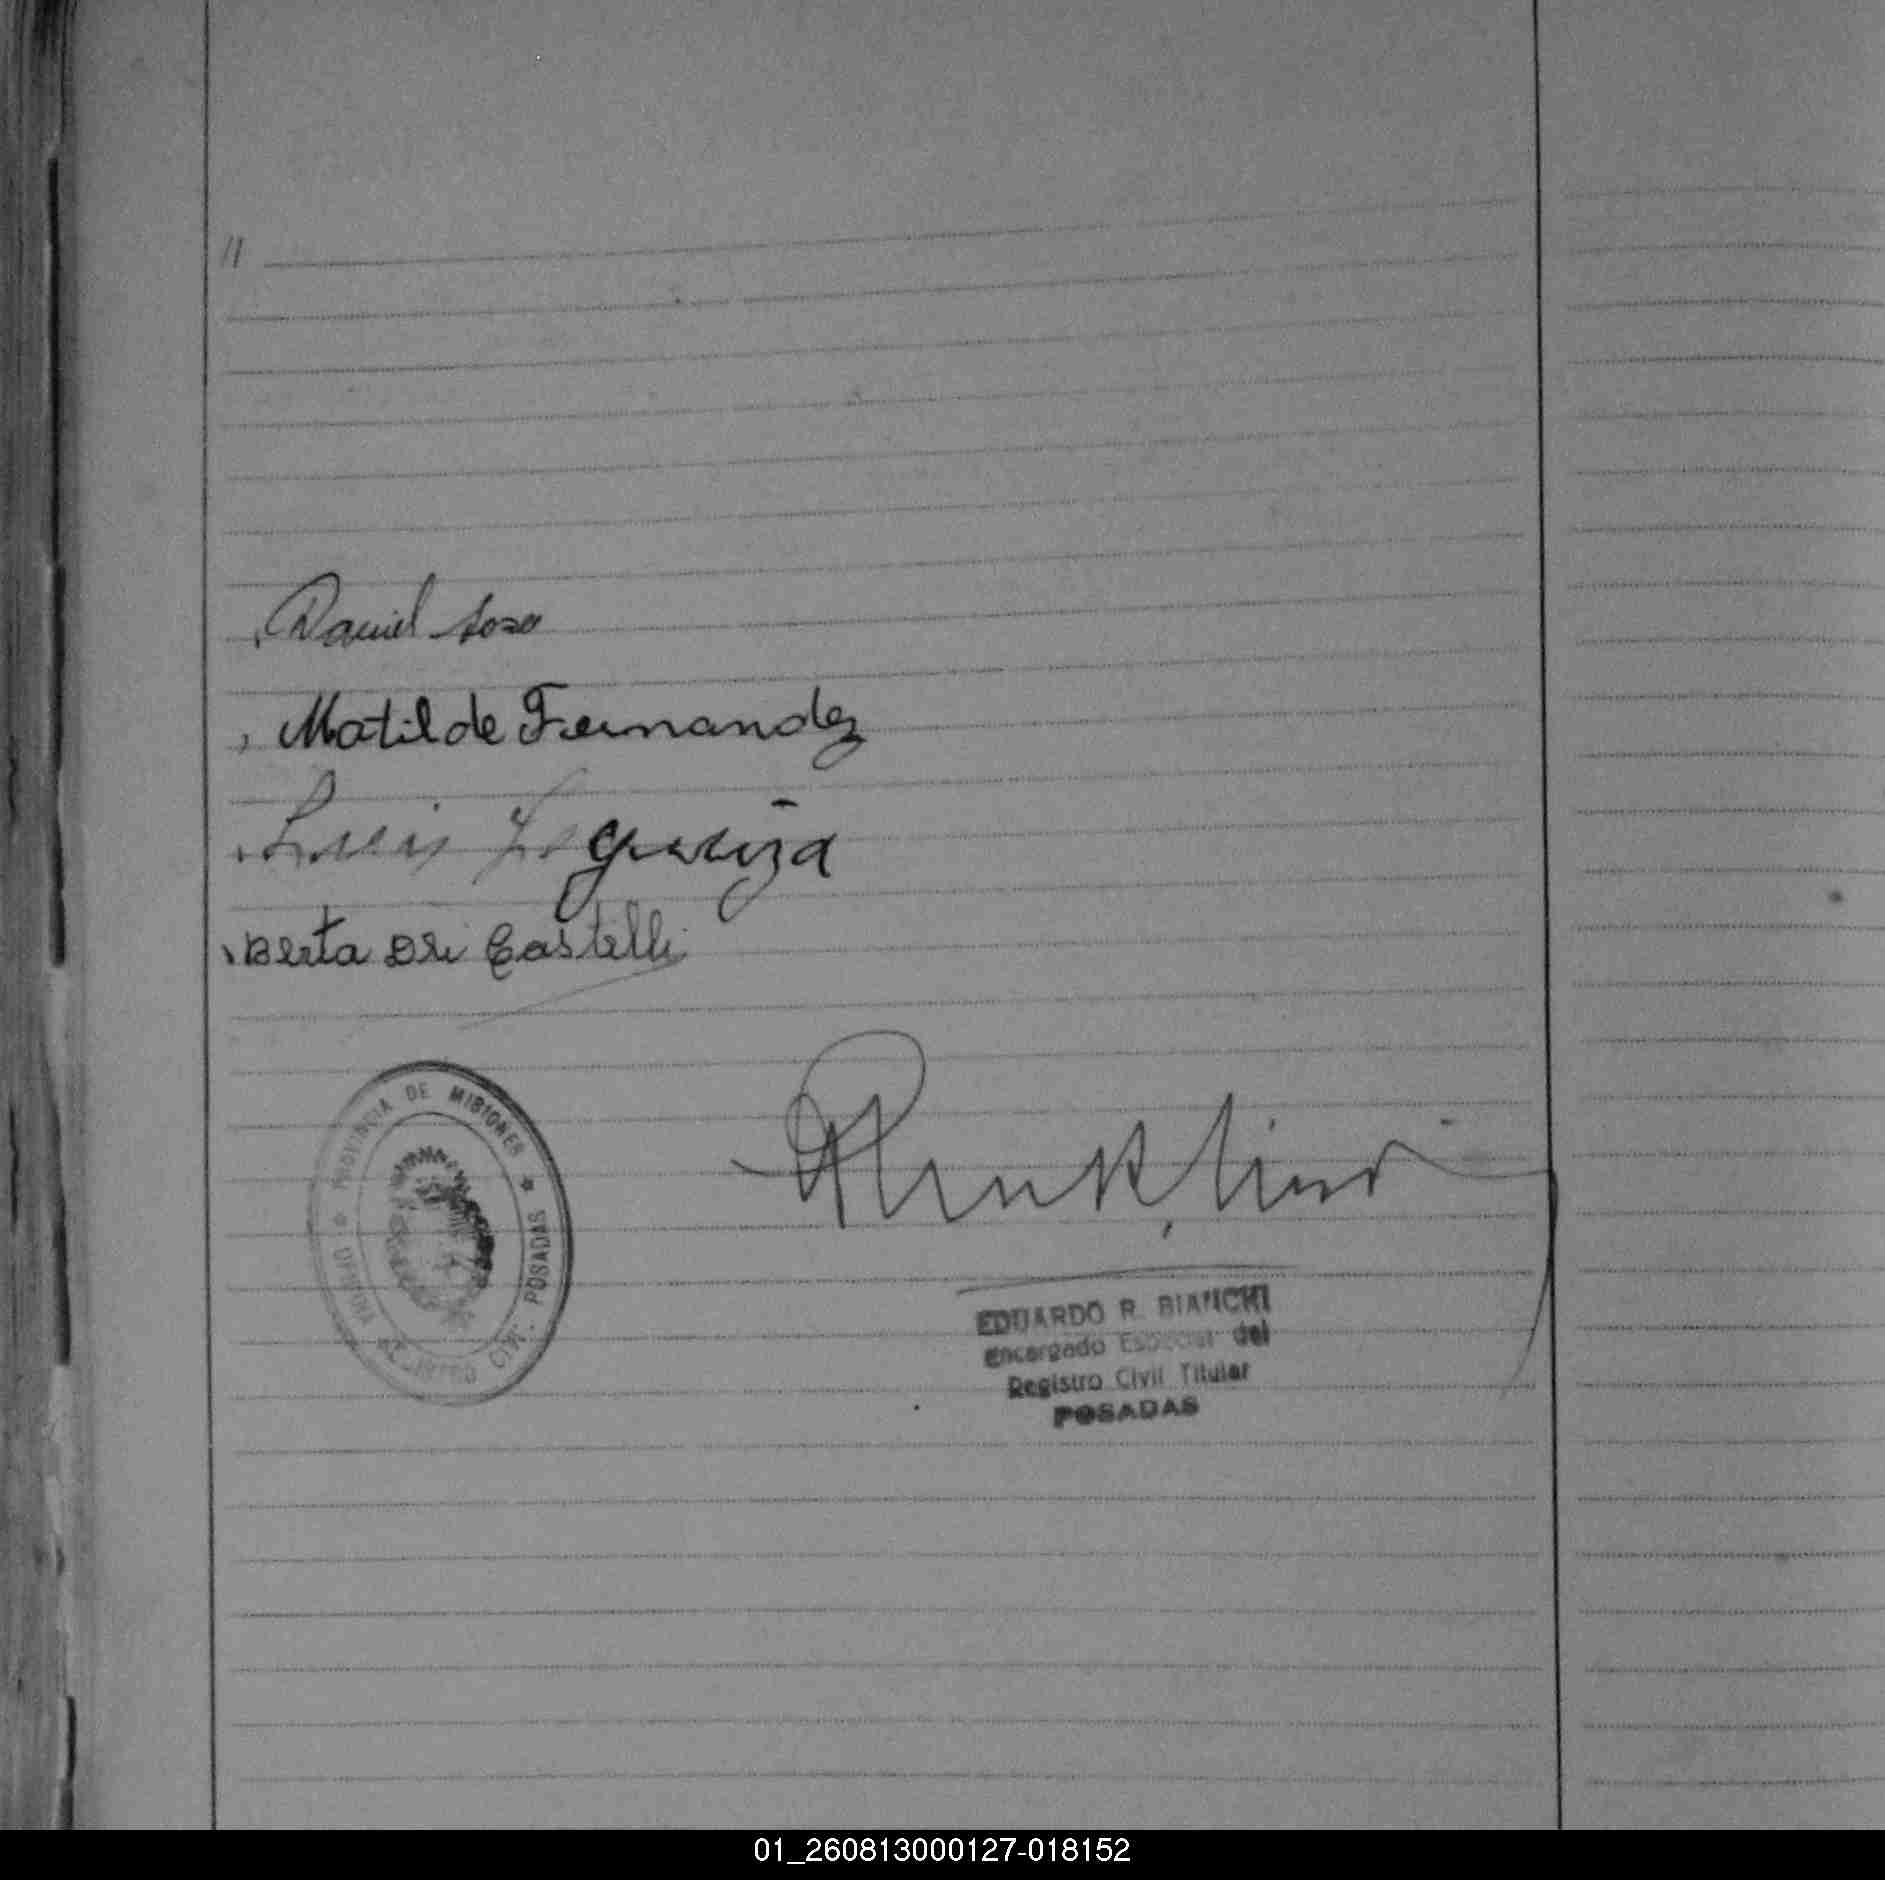 11
Daniel Sosa
Matilde Fernandez
Luis
Berta Dri Castelli
PROVINCIA DE MISIONES ★ POSADAS
REGISTRO CIVIL
EDUARDO R. BIANCHI
Encargado Especial del
Registro Civil Titular
POSADAS
01_260813000127-018152